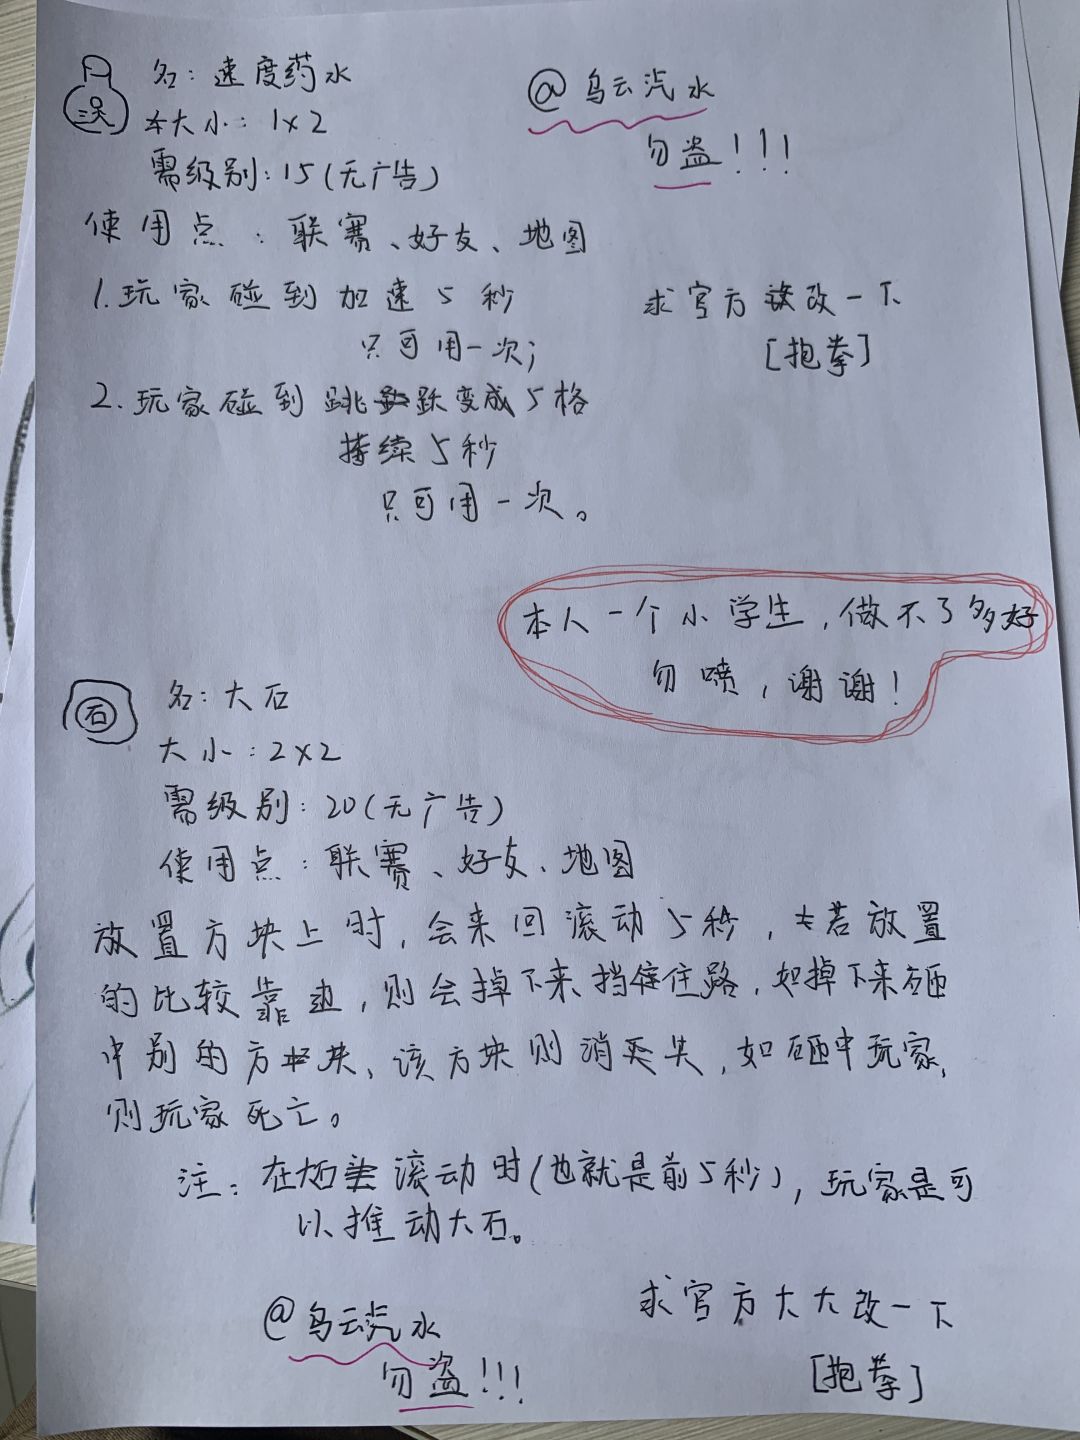 名：速度药水
@乌云汽水
大小：1×2
勿盗！！！
需级别：15（无广告）
使用点：联赛、好友、地图
1.玩家碰到加速5秒
求官方改一下
只可用一次；
[抱拳]
2.玩家碰到跳跃变成5格
持续5秒
只可用一次。
本人一个小学生，做不了多好
勿喷，谢谢！
石
名：大石
大小：2×2
需级别：20（无广告）
使用点：联赛、好友、地图
放置方块上时，会来回滚动5秒，若放置
的比较靠边，则会掉下来挡住路，如掉下来砸
中别的方块、该方块则消失，如砸中玩家，
则玩家死亡。
注：在石滚动时（也就是前5秒），玩家是可
以推动大石。
求官方大大改一下
@乌云汽水
勿盗！！！
[抱拳]